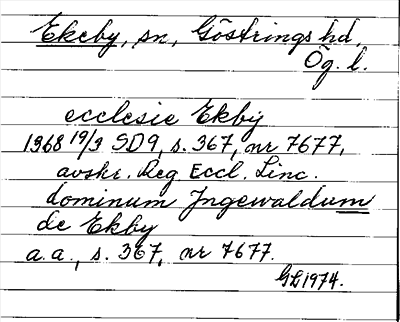 Ekeby, sn, Göstrings hd,
Ög. l.
ecclesie Ekby
1368 19/3 SD9, s. 367, nr 7677,
avskr. Reg Eccl. Linc.
dominum Jngewaldum
de Ekby
a.a., s. 367, nr 7677.
GL1974.